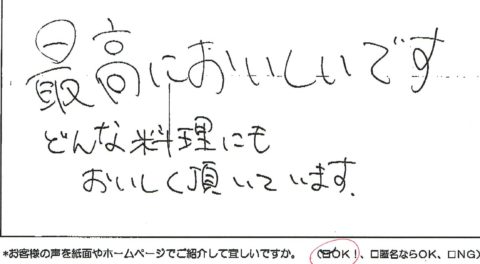 最高においしいです
どんな料理にも
おいしく頂いています.
*お客様の声を紙面やホームページでご紹介して宜しいですか。 (☑OK!、□匿名ならOK、□NG)